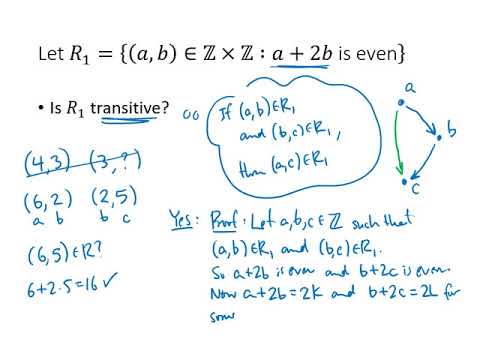 Let R₁ = {(a, b) ∈ ℤ × ℤ : a + 2b is even}
• Is R₁ transitive?
If (a,b)∈R₁
and (b,c)∈R₁,
then (a,c)∈R₁
a
b
c
(4,3) (3,?)
(6,2) (2,5)
a b b c
(6,5)∈R?
6+2·5=16 ✓
Yes: Proof: Let a,b,c∈ℤ such that
(a,b)∈R₁ and (b,c)∈R₁.
So a+2b is even and b+2c is even.
Now a+2b=2K and b+2c=2L for
som